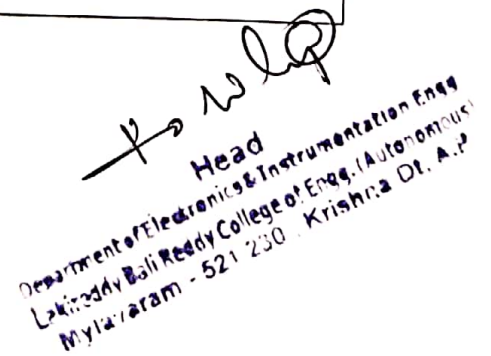 Head
Department of Electronics & Instrumentation Engg
Lakireddy Bali Reddy College of Engg. (Autonomous)
Mylavaram - 521 230. Krishna Dt. A.P